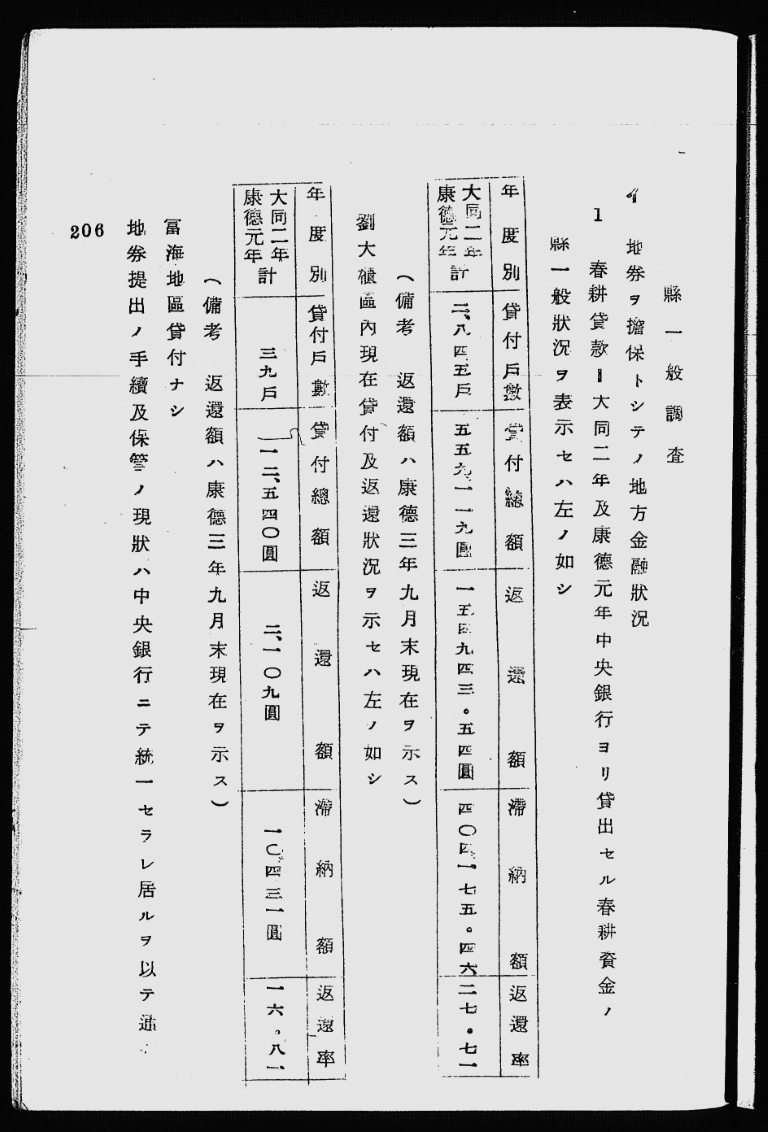 縣一般調査
イ 地券ヲ擔保トシテノ地方金融狀況
1 春耕貸款ー大同二年及康德元年中央銀行ヨリ貸出セル春耕資金ノ
縣一般狀況ヲ表示セハ左ノ如シ
年度別 貸付戶數 貸付總額 返還額 滯納額 返還率
大同二年 康德元年 計 二、八四五戶 五五九、一一九圓 一五四九四三。五四圓 四〇四一七五。四六 二七。七一
(備考 返還額ハ康德三年九月末現在ヲ示ス)
劉大 區內現在貸付及返還狀況ヲ示セハ左ノ如シ
年度別 貸付戶數 貸付總額 返還額 滯納額 返還率
大同二年 康德元年 計 三九戶 一二、五四〇圓 二、一〇九圓 一〇四三一圓 一六。八一
(備考 返還額ハ康德三年九月末現在ヲ示ス)
富海地區貸付ナシ
地券提出ノ手續及保管ノ現狀ハ中央銀行ニテ統一セラレ居ルヲ以テ
206